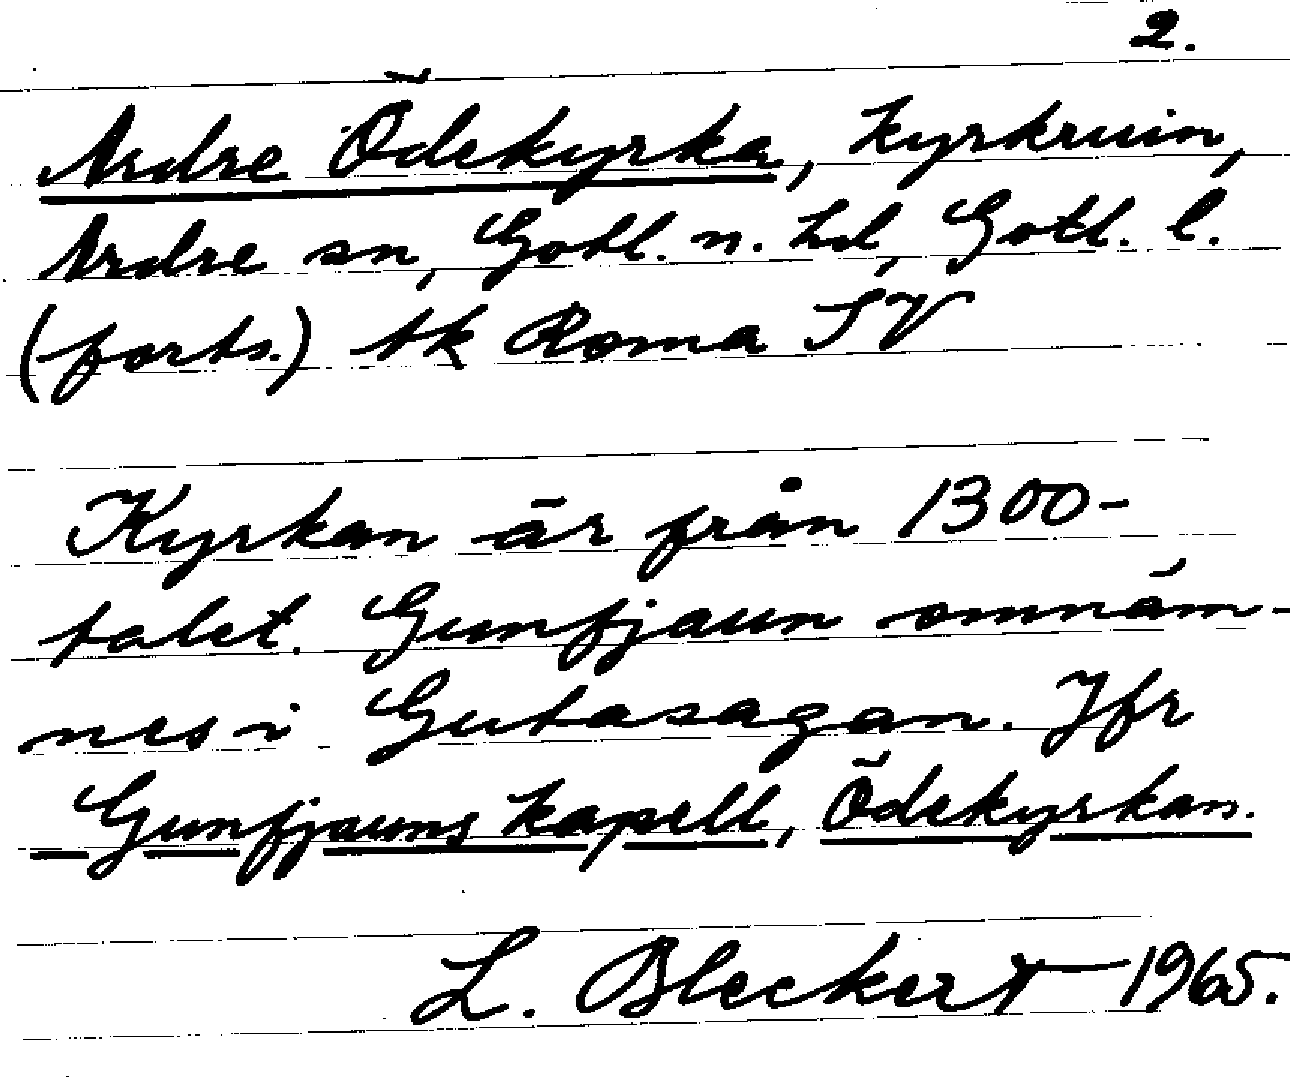 2.
Ardre Ödekyrka, kyrkruin,
Ardre sn, Gotl. n. hd, Gotl. l.
(forts.) tk Roma SV
Kyrkan är från 1300-
talet. Gunfjaun omnäm-
nes i Gutasagan. Jfr
Gunfjauns kapell, Ödekyrkan.
L. Bleckert 1965.